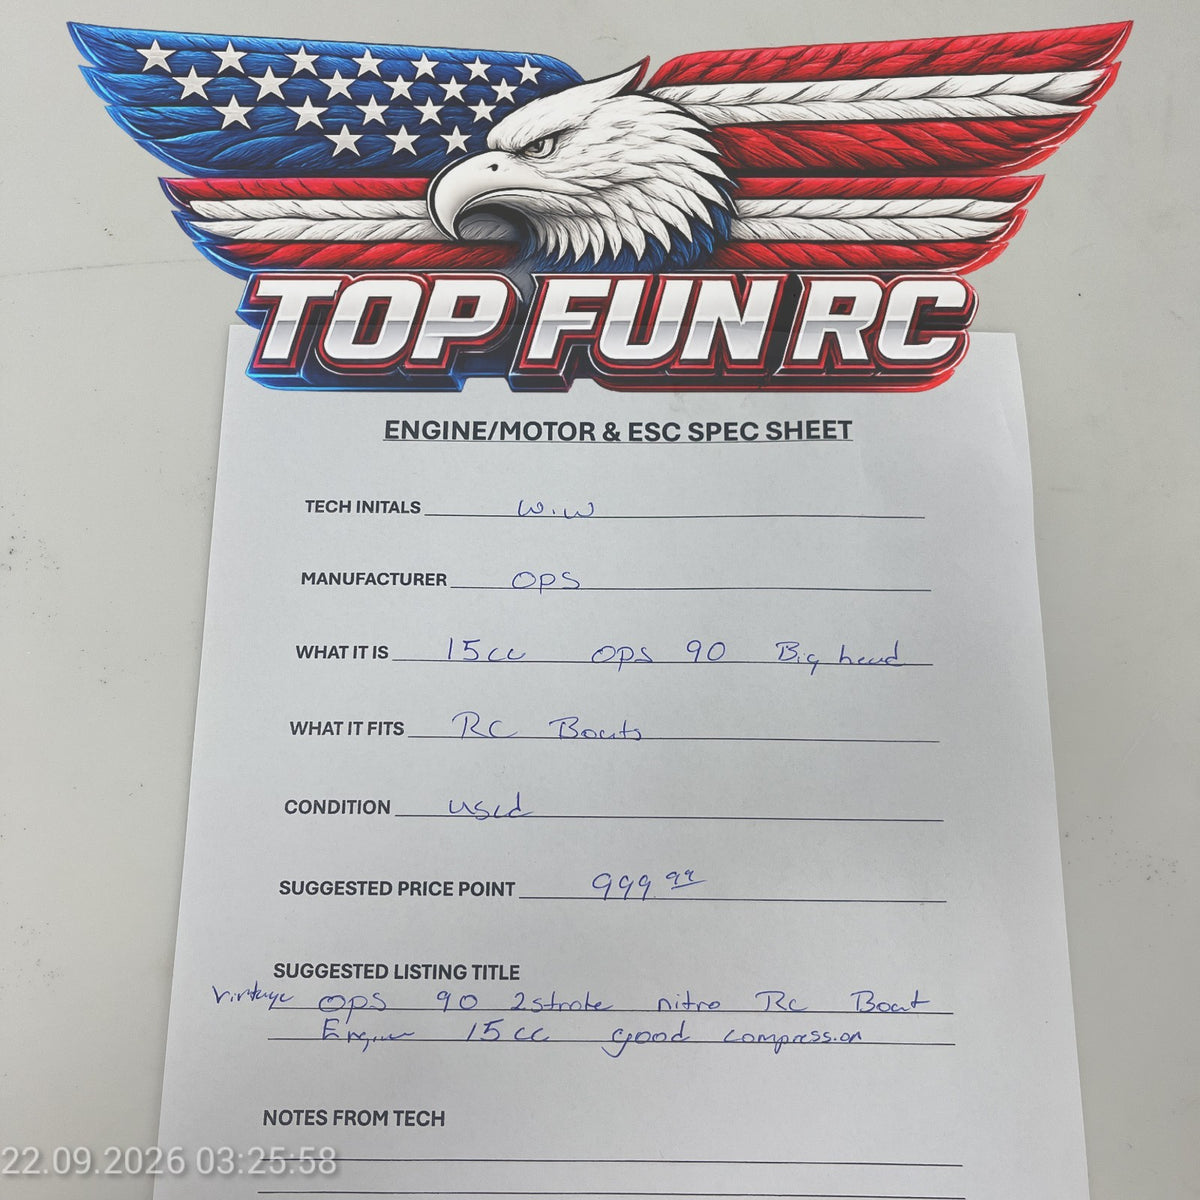 TOP FUN RC
ENGINE/MOTOR & ESC SPEC SHEET
TECH INITALS W.W
MANUFACTURER OPS
WHAT IT IS 15cc OPS 90 Big head
WHAT IT FITS RC Boats
CONDITION used
SUGGESTED PRICE POINT 999.99
SUGGESTED LISTING TITLE
Vintage OPS 90 2stroke nitro Rc Boat
Engine 15cc good compression
NOTES FROM TECH
22.09.2026 03:25:58